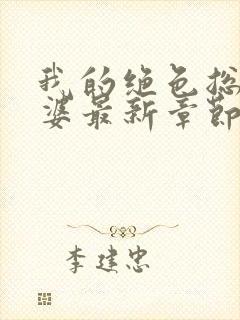 我的绝色总
婆最新章节
李建忠